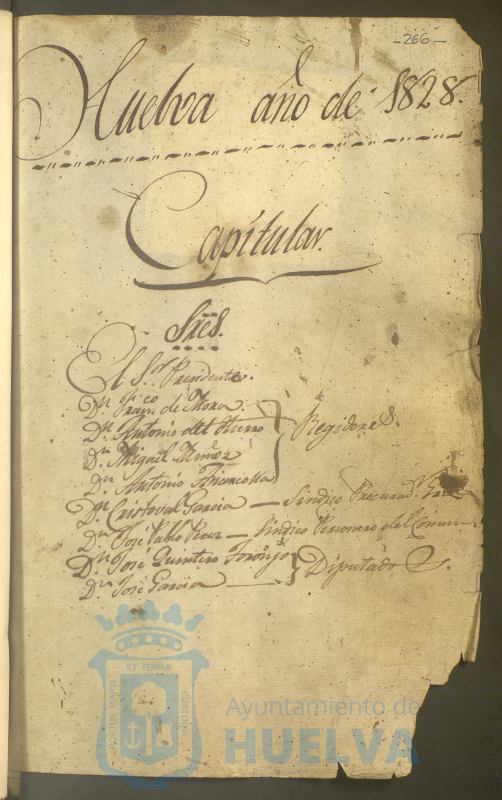 -266-
Huelva año de 1828.
Capitular.
Sres.
El Sor. Presidente.
Dn. Franco. de Mora.
Dn. Antonio del Hierro
Dn. Miguel Muñoz
Dn. Antonio
Regidores.
Dn. Cristoval Garcia — Sindico Procurador
Dn. José Pablo Perez — Sindico Personero del Comun
Dn. José Quintero
Dn. José Garcia —
Diputados.
PORTUS MARIS ET TERRAE CUSTODIA
Ayuntamiento de
HUELVA